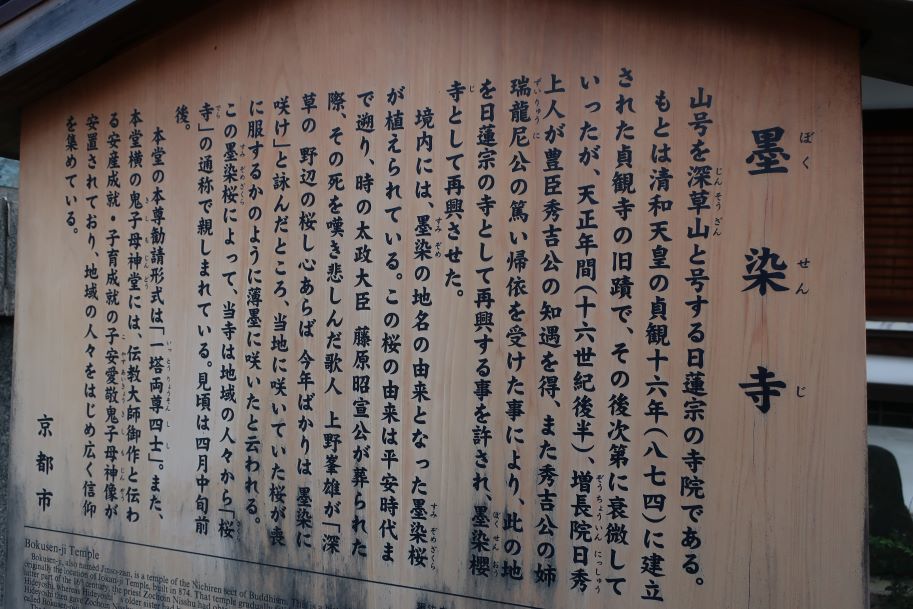 墨染寺
ぼくせんじ
山号を深草山と号する日蓮宗の寺院である。
じんそうざん
もとは清和天皇の貞観十六年（八七四）に建立
された貞観寺の旧蹟で、その後次第に衰微して
いったが、天正年間（十六世紀後半）、増長院日秀
ぞうちょういんにっしゅう
上人が豊臣秀吉公の知遇を得、また秀吉公の姉
瑞龍尼公の篤い帰依を受けた事により、此の地
ずいりゅうに
を日蓮宗の寺として再興する事を許され、墨染櫻
ぼくせんおう
寺として再興させた。
じ
境内には、墨染の地名の由来となった墨染桜
すみぞめ
すみぞめざくら
が植えられている。この桜の由来は平安時代ま
で遡り、時の太政大臣 藤原昭宣公が葬られた
際、その死を嘆き悲しんだ歌人 上野峯雄が「深
草の 野辺の桜し心あらば 今年ばかりは 墨染に
咲け」と詠んだところ、当地に咲いていた桜が喪
に服するかのように薄墨に咲いたと云われる。
この墨染桜によって、当寺は地域の人々から「桜
すみぞめざくら
さくら
寺」の通称で親しまれている。見頃は四月中旬前
でら
後。
本堂の本尊勧請形式は「一塔両尊四士」。また、
いっとうりょうそんしし
本堂横の鬼子母神堂には、伝教大師御作と伝わ
きしもじんどう
る安産成就・子育成就の子安愛敬鬼子母神像が
こやすあいきょうきしもじんぞう
安置されており、地域の人々をはじめ広く信仰
を集めている。
京都市
Bokusen-ji Temple
Bokusen-ji, also named Jinso-zan, is a temple of the Nichiren sect of Buddhism. This is
originally the location of Jokan-ji Temple, built in 874. That temple gradually
latter part of the 16th century, the priest Zochoin Nisshu had
Hideyoshi, whereas Hideyoshi's older sister had
Hideyoshi then gave Zochoin Nisshu